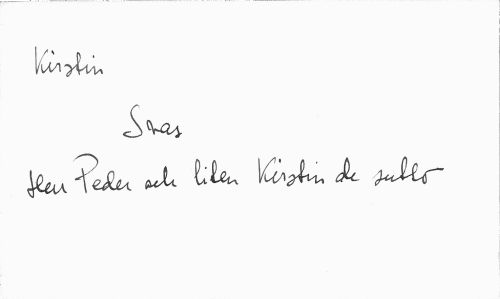 Kirstin
Svas
Herr Peder och liten Kirstin de sutto